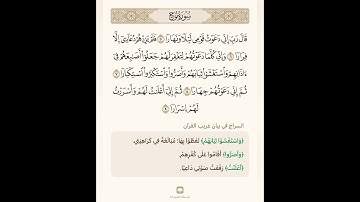 سُورَةُ نُوحٍ
قَالَ رَبِّ إِنِّي دَعَوْتُ قَوْمِي لَيْلًا وَنَهَارًا ۝ فَلَمْ يَزِدْهُمْ دُعَاءِي إِلَّا
فِرَارًا ۝ وَإِنِّي كُلَّمَا دَعَوْتُهُمْ لِتَغْفِرَ لَهُمْ جَعَلُوا أَصَابِعَهُمْ فِي
ءَاذَانِهِمْ وَاسْتَغْشَوْا ثِيَابَهُمْ وَأَصَرُّوا وَاسْتَكْبَرُوا اسْتِكْبَارًا
۝ ثُمَّ إِنِّي دَعَوْتُهُمْ جِهَارًا ۝ ثُمَّ إِنِّي أَعْلَنْتُ لَهُمْ وَأَسْرَرْتُ
لَهُمْ إِسْرَارًا ۝
السراج في بيان غريب القرآن
﴿وَاسْتَغْشَوْا ثِيَابَهُمْ﴾ تَغَطَّوْا بِهَا؛ مُبَالَغَةً فِي كَرَاهَتِي.
﴿وَأَصَرُّوا﴾ أَقَامُوا عَلَى كُفْرِهِمْ.
﴿أَعْلَنْتُ﴾ رَفَعْتُ صَوْتِي دَاعِيًا.